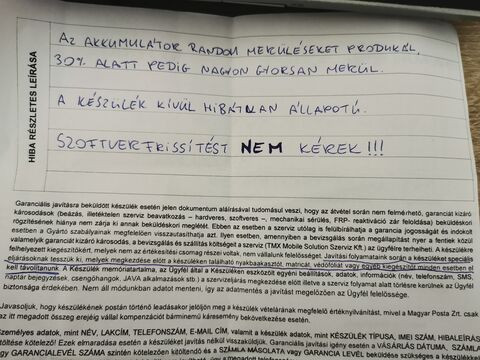 HIBA RÉSZLETES LEÍRÁSA
AZ AKKUMULÁTOR RANDOM MERÜLÉSEKET PRODUKÁL,
30% ALATT PEDIG NAGYON GYORSAN MERÜL.
A KÉSZÜLÉK KÍVÜL HIBÁTLAN ÁLLAPOTÚ.
SZOFTVERFRISSÍTÉST NEM KÉREK!!!
Garanciális javításra beküldött készülék esetén jelen dokumentum aláírásával tudomásul veszi, hogy az átvétel során nem felmérhető, garanciát kizáró
károsodások (beázás, illetéktelen szerviz beavatkozás – hardveres, szoftveres –, mechanikai sérülés, FRP- reaktiváció zár feloldása) beküldéskori
rögzítésének hiánya nem zárja ki annak beküldéskori meglétét. Ebben az esetben a szerviz utólag is felülbírálhatja a garancia jogosságát és indokolt
esetben a Gyártó szabályainak megfelelően visszautasíthatja azt. Ilyen esetben, amennyiben a bevizsgálás során megállapítást nyer a fentiek közül
valamelyik garanciát kizáró károsodás, a bevizsgálás és szállítás költségeit a szerviz (TMX Mobile Solution Szerviz Kft.) az ügyfélre terhelheti. A készülékre
felhelyezett kiegészítőkért, melyek nem az értékesítési csomag részei voltak, nem vállalunk felelősséget. Javítási folyamataink során a készüléket speciális
eljárásoknak tesszük ki, melyek megkezdése előtt a készüléken található nyakbaakasztót, matricát, védőfóliát vagy egyéb kiegészítőt minden esetben el
kell távolítanunk. A Készülék memóriatartalma, az Ügyfél által a Készülék eszközölt egyéni beállítások, adatok, információk (név, telefonszám, SMS,
naptár bejegyzések, csengőhangok, JAVA alkalmazások stb.) a szervizeljárás megkezdése előtt illetve a szerviz folyamat alatt törlésre kerülnek az Ügyfél
biztonsága érdekében. Nem áll módunkban adatot menteni, így az adatmentés a javítást megelőzően az Ügyfél felelőssége.
Javasoljuk, hogy készülékének postán történő feladásakor jelöljön meg a készülék vételárának megfelelő értéknyilvánítást, mivel a Magyar Posta Zrt. csak
az itt megadott összeg erejéig vállal kompenzációt bárminemű káresemény bekövetkezése esetén.
Személyes adatok, mint NÉV, LAKCÍM, TELEFONSZÁM, E-MAIL CÍM, valamint a készülék adatok, mint KÉSZÜLÉK TÍPUSA, IMEI SZÁM, HIBALEÍRÁS
kitöltése kötelező! Ezek elmaradása esetén a készüléket javítás nélkül visszaküldjük. Garanciális igény esetén VÁSÁRLÁS DÁTUMA, SZÁMLA
GARANCIALEVÉL SZÁMA szintén kötelezően kitöltendő és a SZÁMLA MÁSOLATA vagy GARANCIA LEVÉL beküldése szükséges a